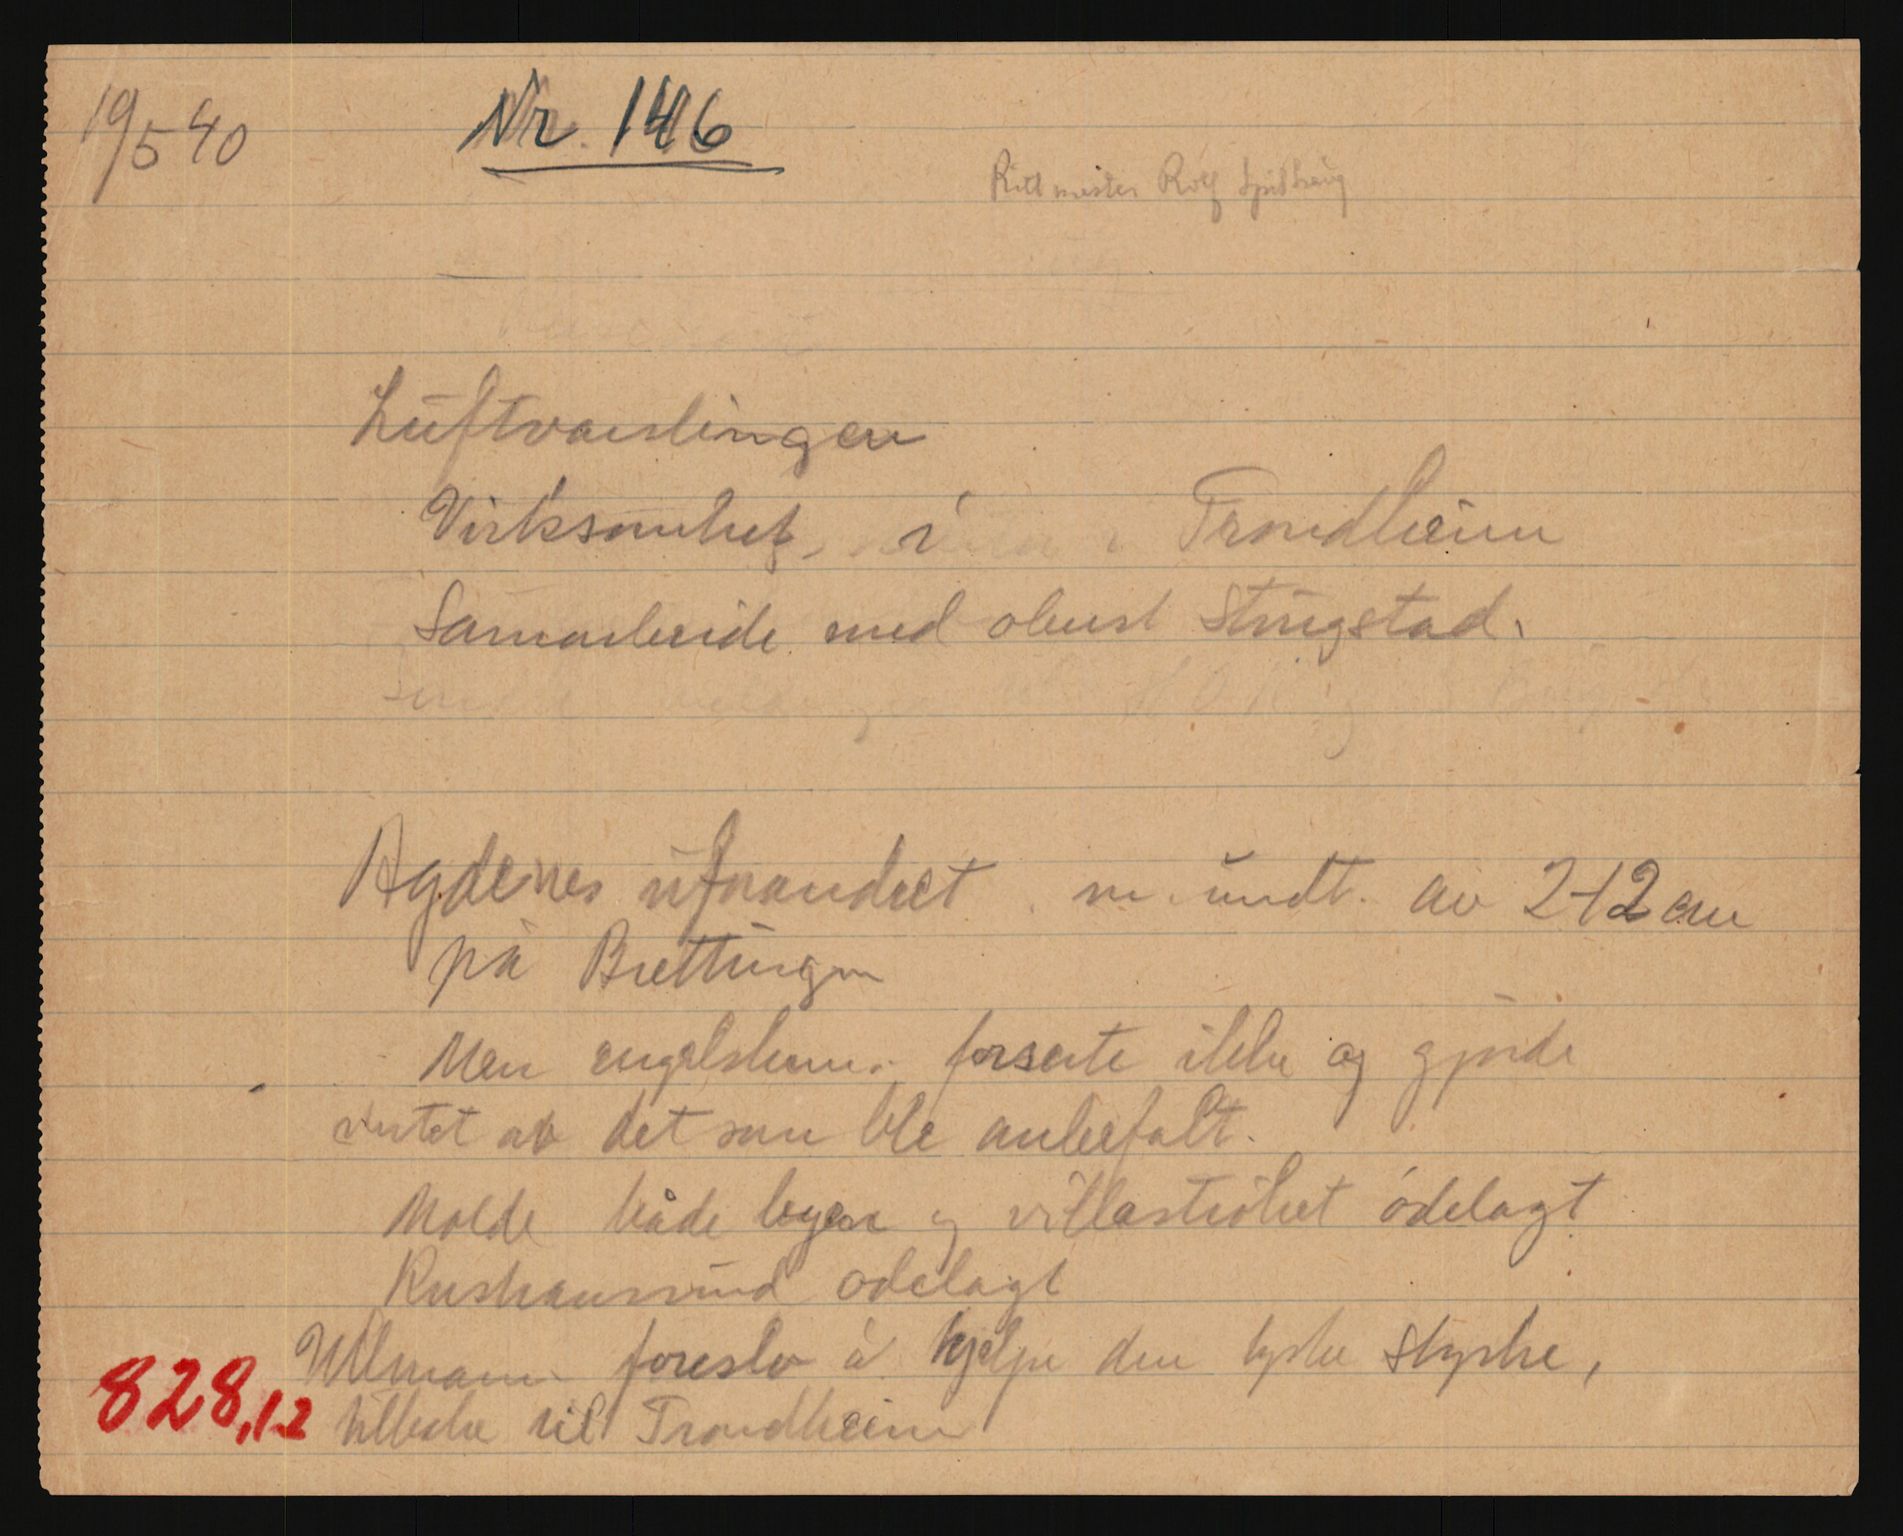 19/5 40
Nr. 146
Rittmester Rolf
Luftvarslingen
Virksomhet i Trondheim
Samarbeide med oberst Stügstad.
Agdenes uforandret m. undt. av 2-12 cm
på Brettingen
Men engelskenn. forserte ikke og gjorde
intet av det som ble anbefalt.
Molde både byen og villastrøket ødelagt
Kristiansund ødelagt
Ullmann foreslo å hjelpe den tyske styrke,
tilbake til Trondheim
828,12